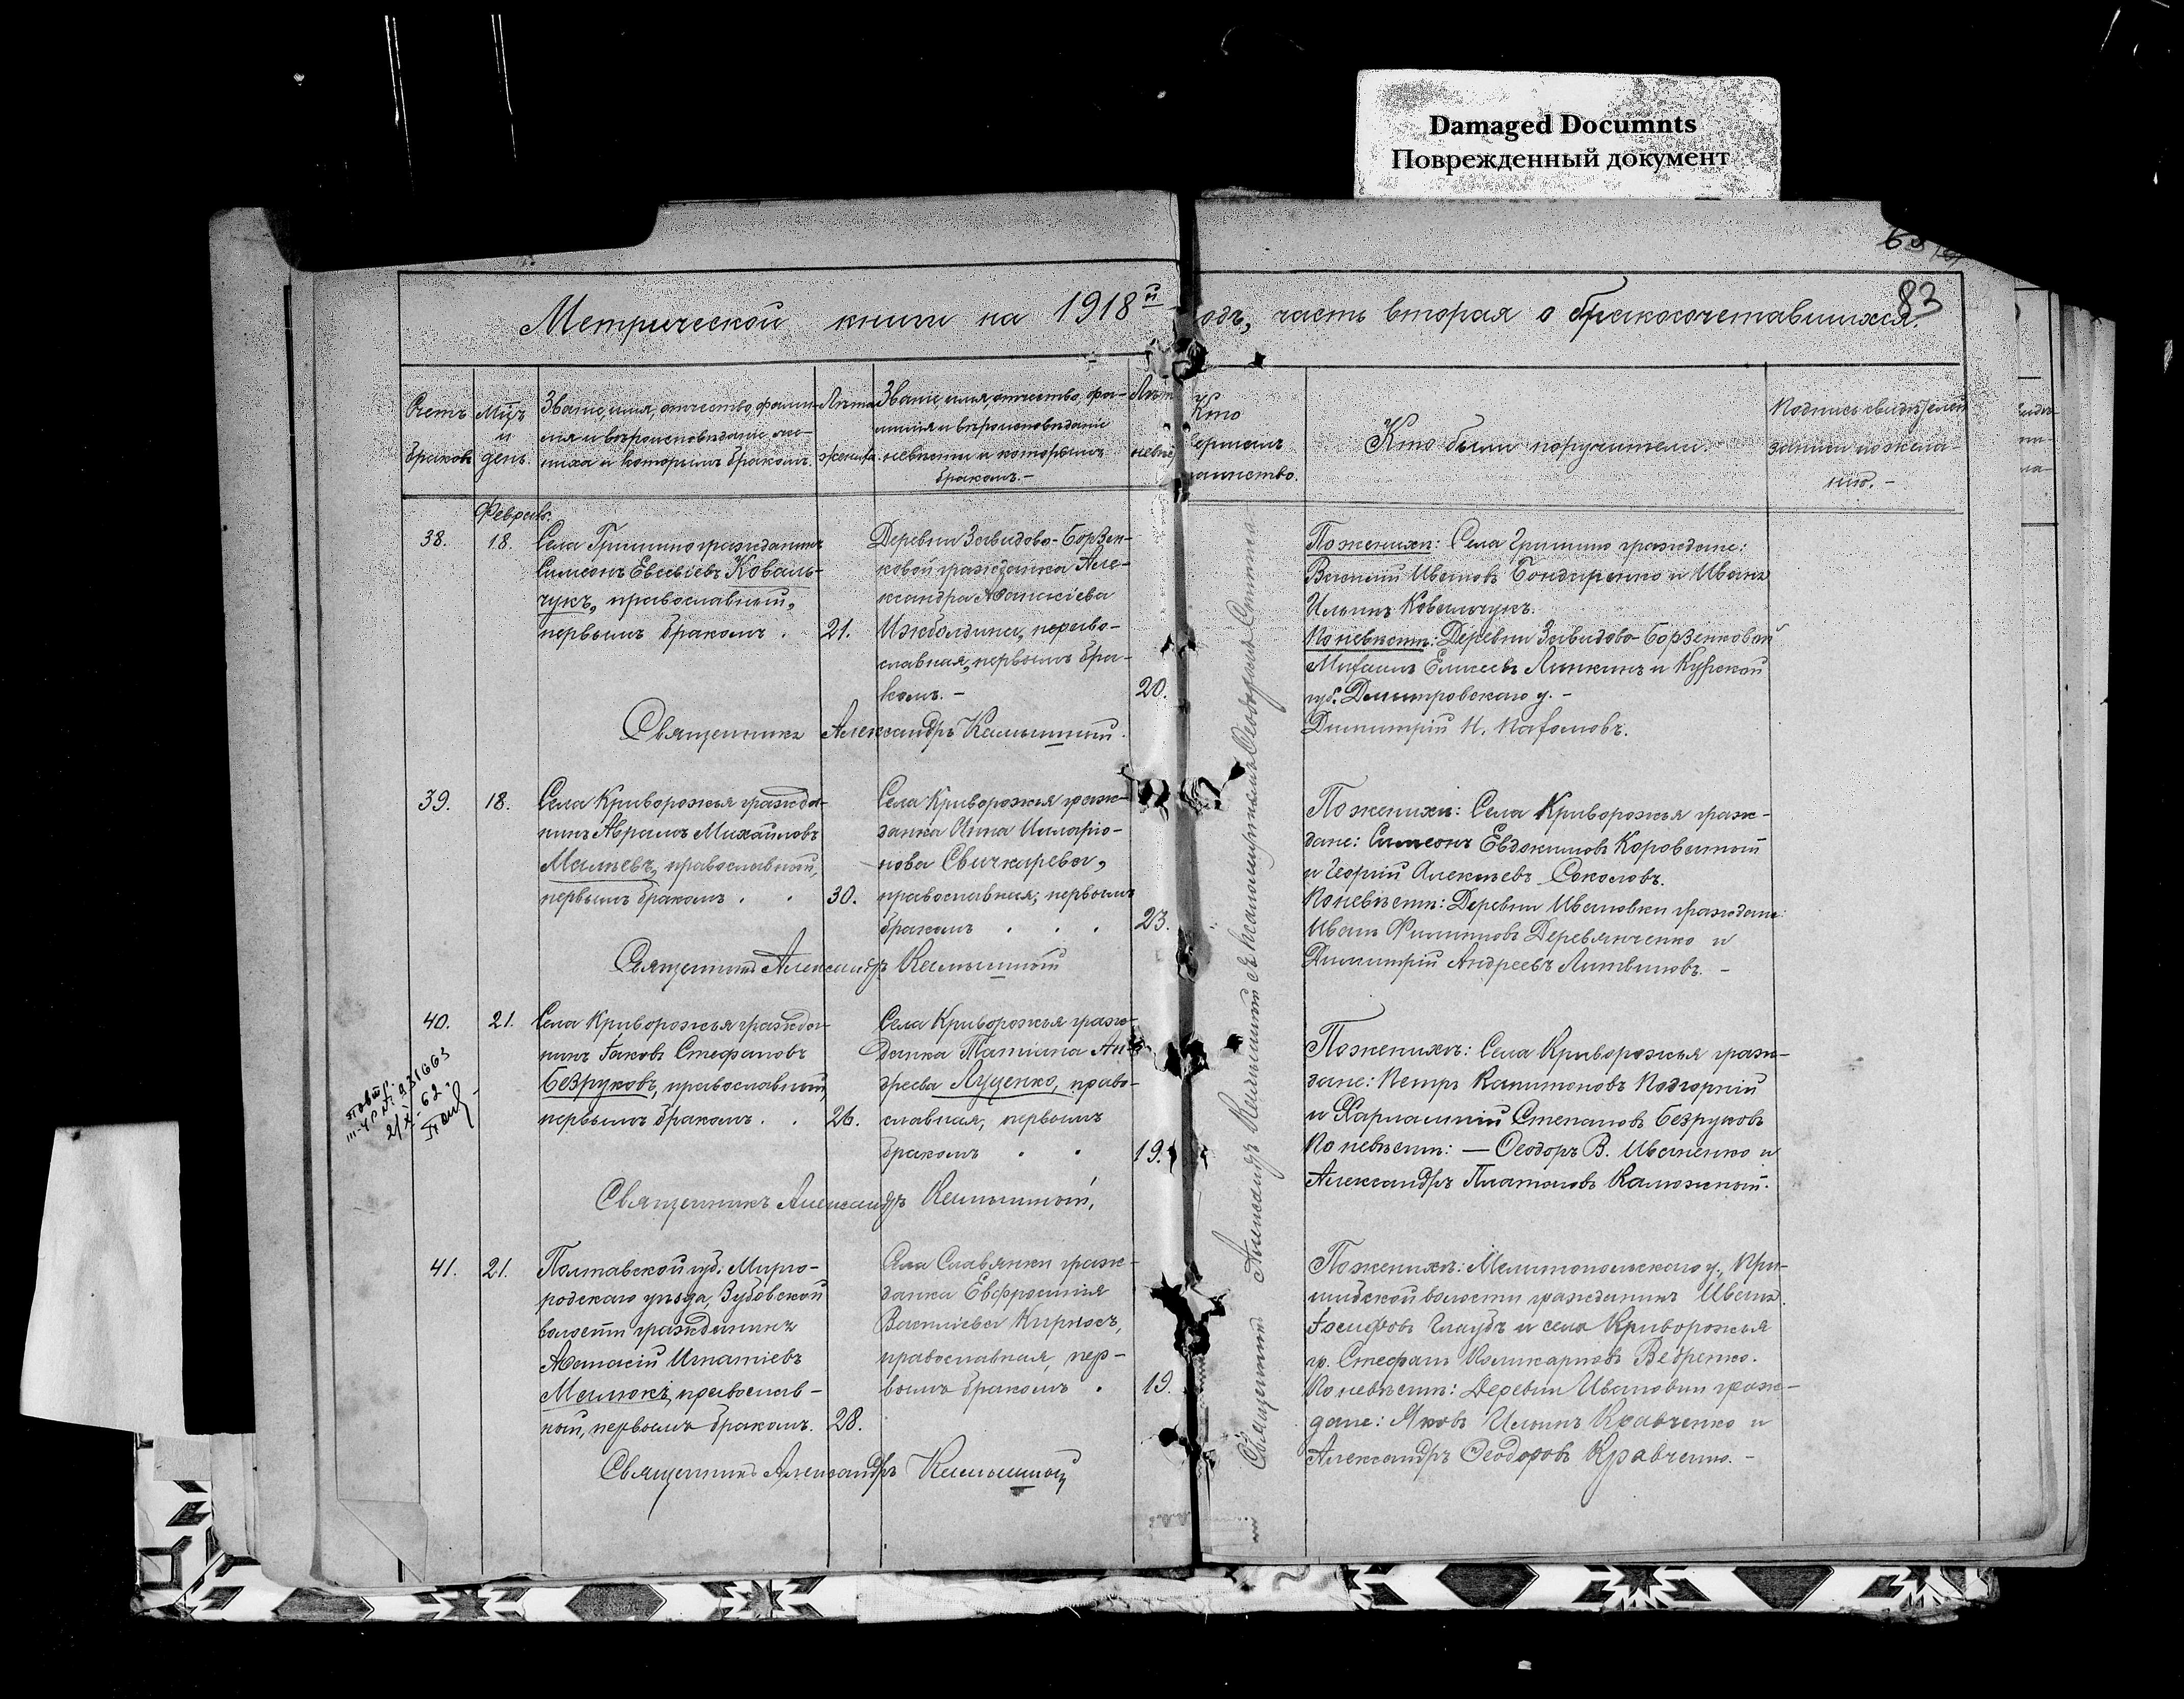 Damaged Documnts
Поврежденный документ
83
Метрической книги на 1918й годъ, часть вторая о бракосочетавшихся.
Счетъ браковъ
Мѣсяцъ и день
Званіе, имя, отчество, фами-
лія и вѣроисповѣданіе же-
ниха и которымъ бракомъ.
Лѣта
жениха.
Званіе, имя, отчество, фа-
милія и вѣроисповѣданіе
невѣсты и которымъ
бракомъ.-
Лѣта
невѣс
Кто
совершалъ
таинство.
Кто были поручители.
Подпись свидѣтелей
записи по жела-
нію.-
Февраль.
38.
18.
Села Гришино гражданинъ
Симеонъ Евсевіевъ Коваль-
чукъ, православный,
первымъ бракомъ.
21.
Деревни Завидово-Борзен-
ковой гражданка Але-
ксандра Аѳанасіева
Ижболдина, право-
славная, первымъ бра-
комъ.-
20.
По женихѣ: Села Гришино граждане:
Василій Ивановъ Бондаренко и Иванъ
Ильинъ Ковальчукъ.
По невѣстѣ: Деревни Завидово-Борзенковой
Михаилъ Елисеевъ Липкинъ и Курской
губ. Дмитровскаго у.-
Димитрій И.
Священникъ Александръ Камышный.
39.
18.
Села Криворожья гражда-
нинъ Авраамъ Михаиловъ
Мальевъ, православный,
первымъ бракомъ . .
30.
Села Криворожья граж-
данка Анна Иларіо-
нова Свичкарева,
православная, первымъ
бракомъ . . .
23.
По женихѣ: Села Криворожья граж-
дане: Симеонъ Евдокимовъ Коровитый
и Георгій Алексѣевъ Соколовъ.
По невѣстѣ: Деревни Ивановки граждане:
Иванъ Филипповъ Деревянченко и
Димитрій Андреевъ Литвиновъ.-
Священникъ Александръ Камышный
40.
21.
Села Криворожья гражда-
нинъ Іаковъ Стефановъ
Безруковъ, православный,
первымъ бракомъ . .
26.
Села Криворожья граж-
данка Татіана Ан-
дреева Луценко, право-
славная, первымъ
бракомъ . .
19.
По женихѣ: Села Криворожья граж-
дане: Петръ Капитоновъ Подгорній
и Харлампій Степановъ Безруковъ
По невѣстѣ: — Ѳеодоръ В. Иваненко и
Александръ Платоновъ Калюжный.
Священникъ Александръ Камышный,
41.
21.
Полтавской губ. Мирго-
родскаго уѣзда, Зубовской
волости гражданинъ
Аѳанасій Игнатіевъ
Малюкъ, православ-
ный, первымъ бракомъ.
28.
Села Славянки граж-
данка Евфросинія
Василіева Кирносъ,
православная, пер-
вымъ бракомъ .
19.
По женихѣ: Мелитопольскаго у.,
волости гражданинъ Иванъ
Іосифовъ и села Криворожья
гр. Стефанъ Поликарповъ Ведренко.
По невѣстѣ: Деревни Ивановки граж-
дане: Яковъ Ильинъ Кравченко и
Александръ Ѳеодоровъ Кравченко.-
Священникъ Александръ Камышный
Священникъ Александръ Камышный съ псаломщикомъ Ѳеодоромъ